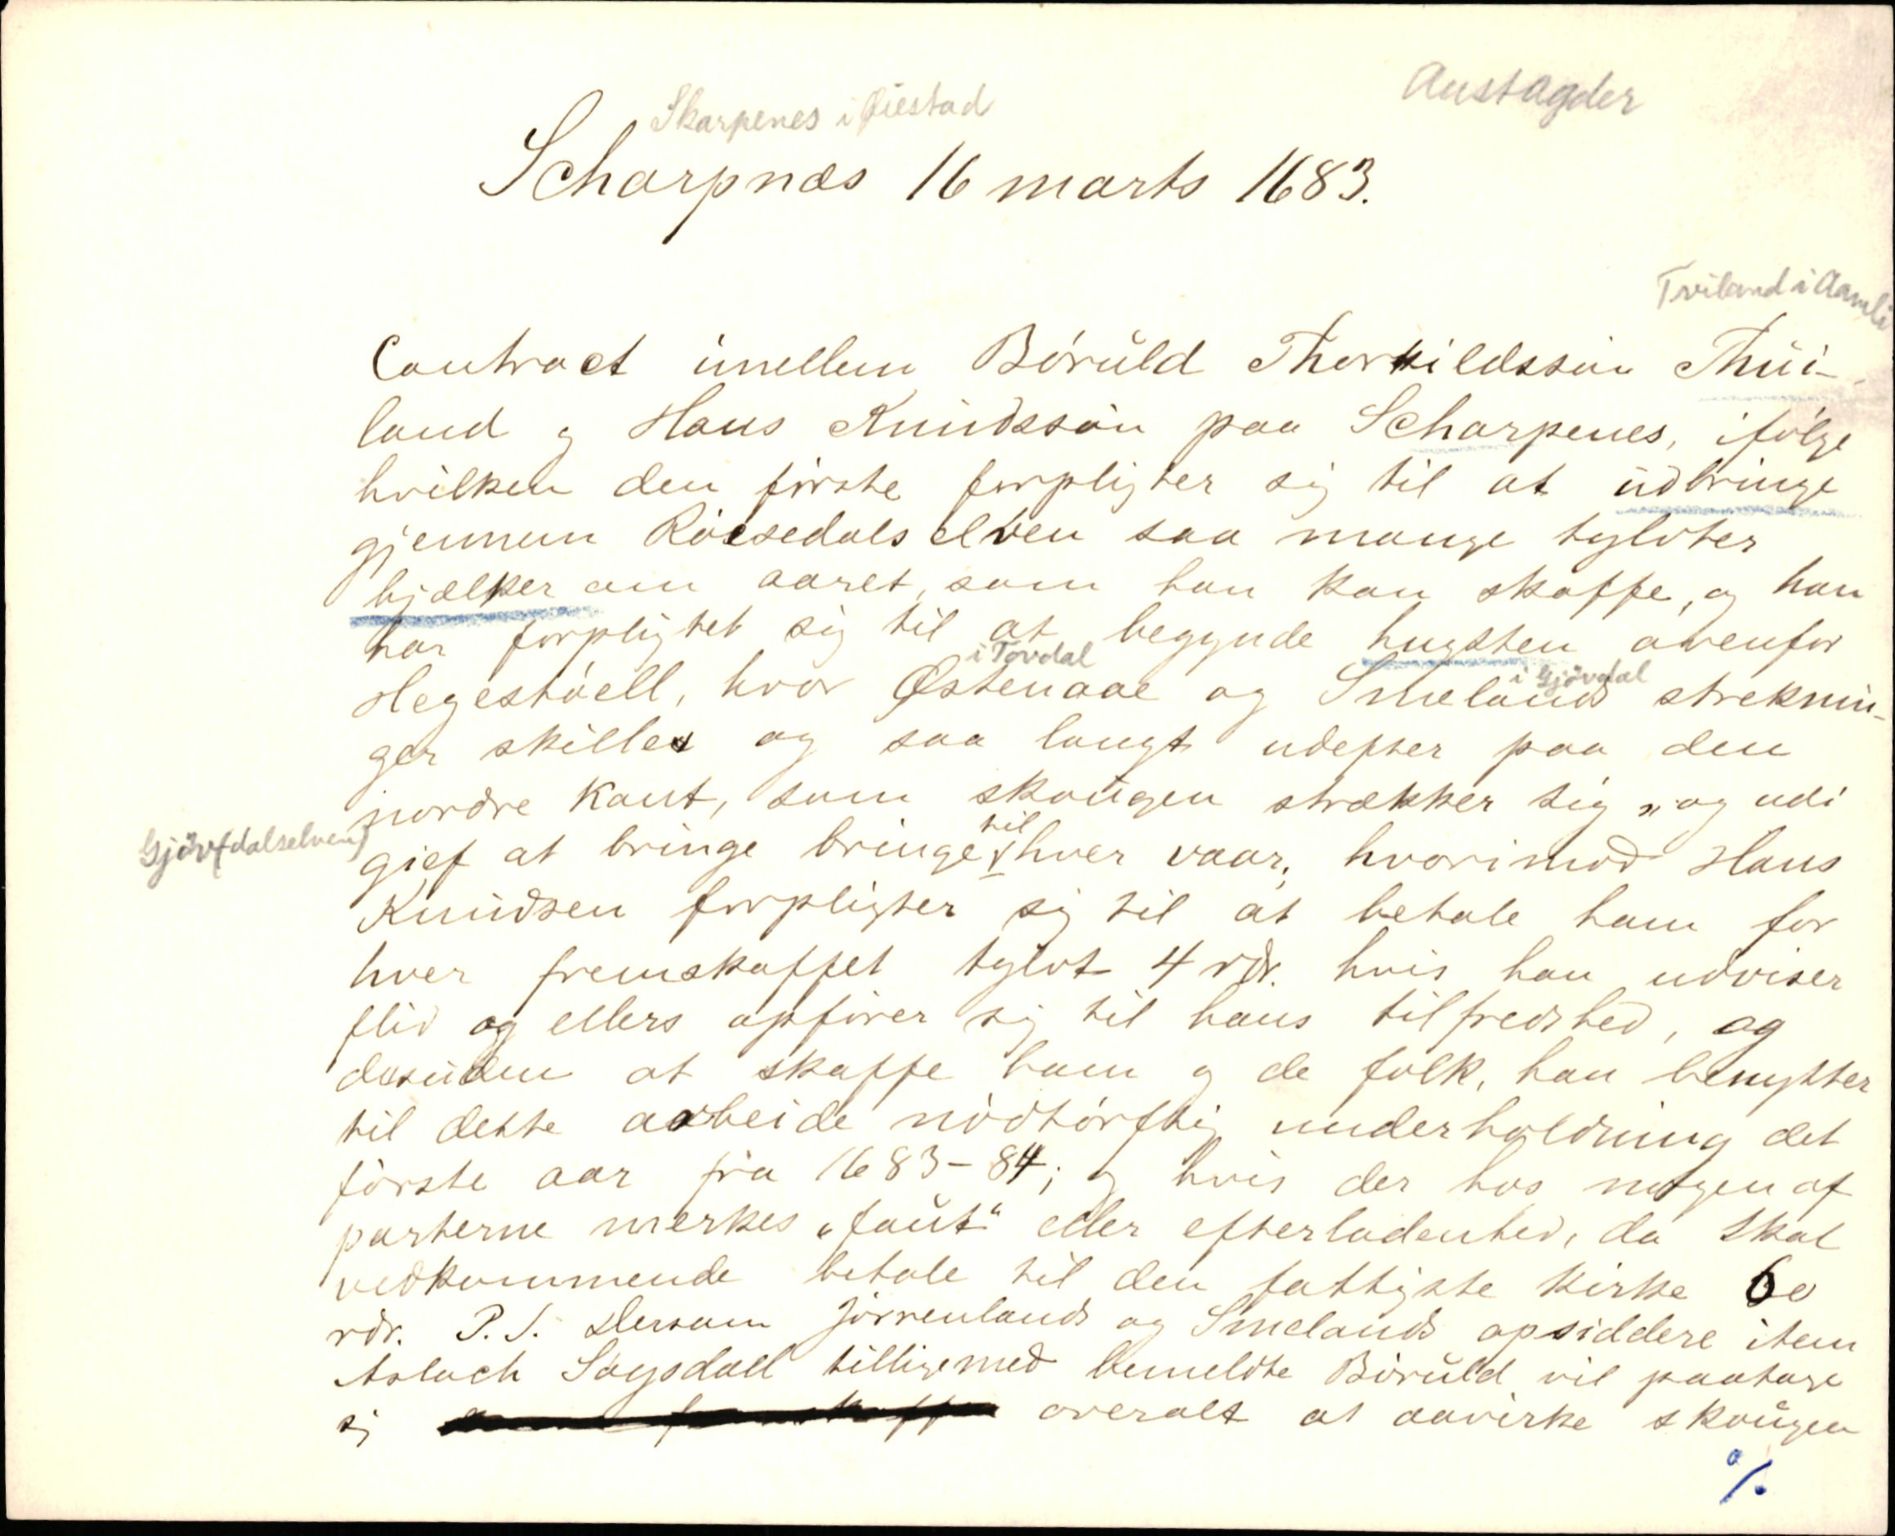 Aust Agder
Skarpenes i Øiestad
Scharpnæs 16 marts 1683.
Tveiland i Aamli
Contract imellem Börüld Thorkildssön Thüi-
land og Hans Knüdssön paa Scharpenes, ifölge
hvilken den förste forpligter sig til at üdbringe
gjennem Röesedals elven saa mange tylvter
bjælker om aaret, som han kan skaffe, og han
har forpligtet sig til at begynde hugsten ovenfor
i Tovdal i Gjövdal
Hegestöell, hvor Østenaae og Smelands streknin-
ger skilles og saa langt udefter paa den
nordre Kant, som skoügen strækker sig „og udi
Gjöv(dalselven)
gief at bringe bringe til hver vaar; hvorimod Hans
Knüdsen forpligter sig til at betale ham for
hver fremskaffet tylvt 4 rdr. hvis han udviser
flid og ellers opförer sig til hans tilfredshed, og
desüden at skaffe ham og de folk, han benytter
til dette arbeide nödtörftig underholdning det
förste aar fra 1683-84; og hvis der hos nogen af
parterne merkes „faüt“ eller efterladenhed, da skal
vedkommende betale til den fattigste kirke 60
rdr. P.S. Dersom Jörrenlands og Smelands opsiddere item
Aslach Sagsdall tilligemed bemeldte Börüld vil paatage
sig overalt at aavirke skoügen
%